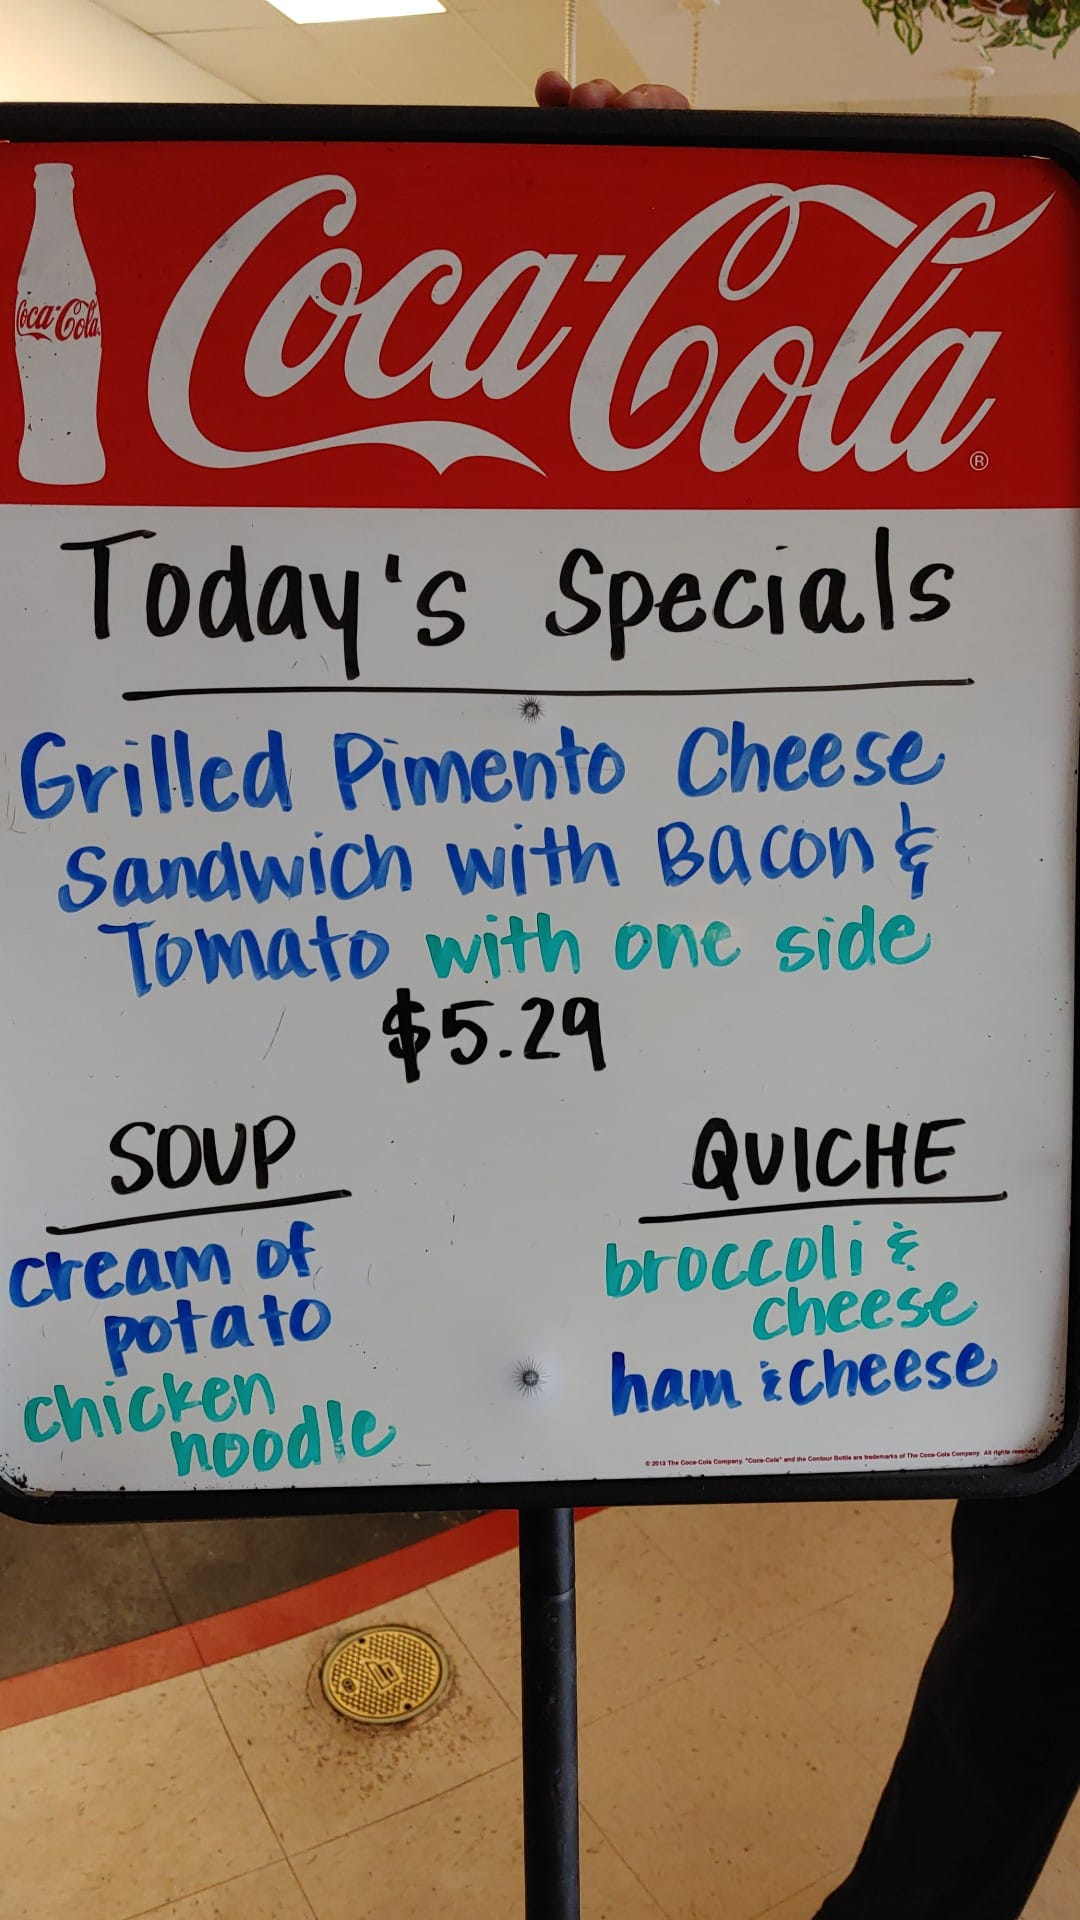 Coca-Cola
Coca-Cola®
Today's Specials
Grilled Pimento Cheese
Sandwich with Bacon &
Tomato with one side
$5.29
SOUP
cream of
potato
chicken
noodle
QUICHE
broccoli &
cheese
ham & cheese
© 2013 The Coca-Cola Company. "Coca-Cola" and the Contour Bottle are trademarks of The Coca-Cola Company. All rights reserved.